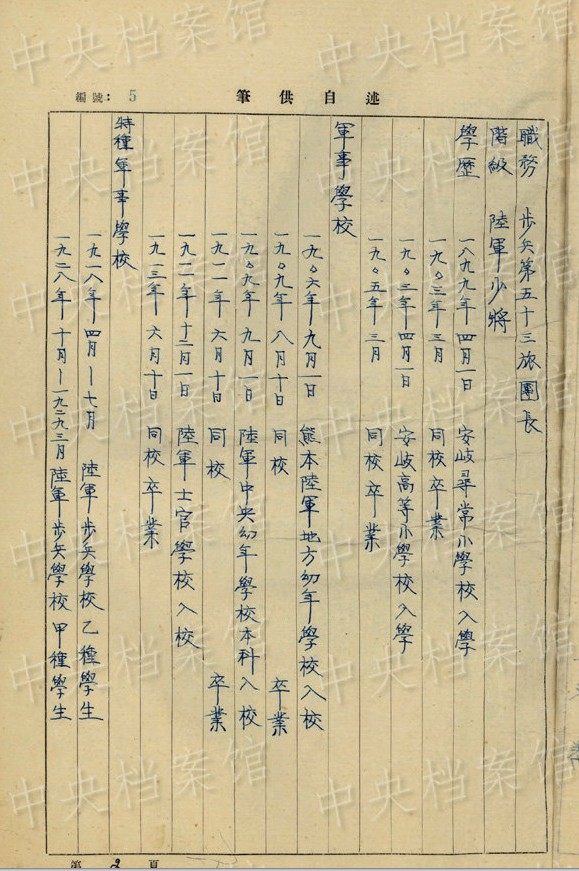 述自供筆
編號：5
職務　步兵第五十三旅團長
階級　陸軍少將
學歷
一八九九年　四月一日　安岐尋常小學校入學
一九〇三年　三月　同校卒業
一九〇三年　四月一日　安岐高等小學校入學
一九〇五年　三月　同校卒業
軍事學校
一九〇六年　九月一日　熊本陸軍地方幼年學校入校
一九〇九年　八月十日　同校　卒業
一九〇九年　九月一日　陸軍中央幼年學校本科入校
一九一一年　六月十日　同校　卒業
一九一一年　十二月一日　陸軍士官學校入校
一九一三年　六月十日　同校卒業
特種軍事學校
一九一八年　四月—七月　陸軍步兵學校乙種學生
一九二八年　十月—一九二九三月　陸軍步兵學校甲種學生
第　2　頁
中央档案馆